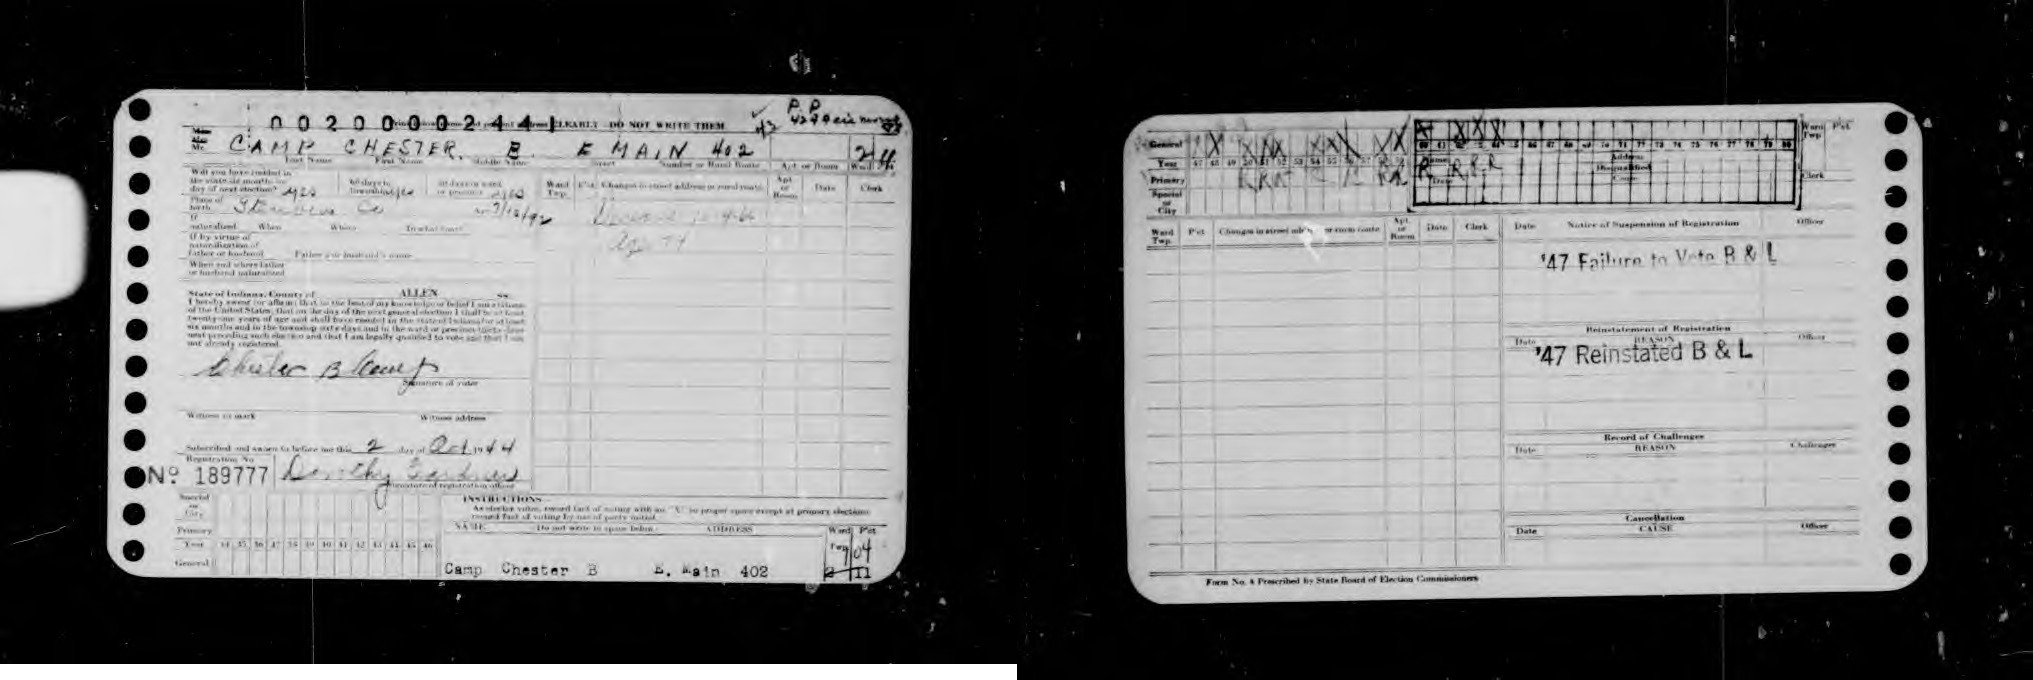 00200002441
CLEARLY DO NOT WRITE THEM
CAMP CHESTER. B. E MAIN 402 2
Last Name First Name Middle Name Street Number or Rural Route Apt. or Room Ward
Will you have resided in
the state six months on
day of next election? yes
60 days in township yes
30 days in ward or precinct yes
Ward Twp. P'ct. Changes in street address or rural route Apt. or Room Date Clerk
Place of birth Co 7/12/92
If naturalized When Where In what court
Age 74
If by virtue of
naturalization of
father or husband Father's or husband's name
When and where father
or husband naturalized
State of Indiana, County of ALLEN ss.
I hereby swear (or affirm) that to the best of my knowledge or belief I am a citizen
of the United States, that on the day of the next general election I shall be at least
twenty-one years of age and shall have resided in the state of Indiana for at least
six months and in the township sixty days and in the ward or precinct thirty days
next preceding such election and that I am legally qualified to vote and that I am
not already registered.
Chester B Camp
Signature of voter
Witness to mark Witness address
Subscribed and sworn to before me this 2 day of Oct 1944
Registration No.
Nº 189777 Dorothy Gardner
Signature of registration officer
Special or City
Primary
Year 34 35 36 37 38 39 40 41 42 43 44 45 46
General
INSTRUCTIONS
As elector votes, record fact of voting with an "X" in proper space except at primary elections
record fact of voting by use of party initial.
NAME Do not write in space below. ADDRESS Ward Twp P'ct
04
Camp Chester B E. Main 402 2 11
General X X X X X X X X X X X X
Year 47 48 49 50 51 52 53 54 55 56 57 58 59 60 61 62 63 64 65 66 67 68 69 70 71 72 73 74 75 76 77 78 79 80
Primary R R R R R R R R R R
Special or City
Name Address
Date Disqualified
Cause
Ward Twp P'ct
Clerk
Ward Twp. P'ct Changes in street address or room route Apt. or Room Date Clerk
Date Notice of Suspension of Registration Officer
'47 Failure to Vote B & L
Reinstatement of Registration
Date REASON Officer
'47 Reinstated B & L
Record of Challenges
Date REASON Challenger
Cancellation
Date CAUSE Officer
Form No. 4 Prescribed by State Board of Election Commissioners